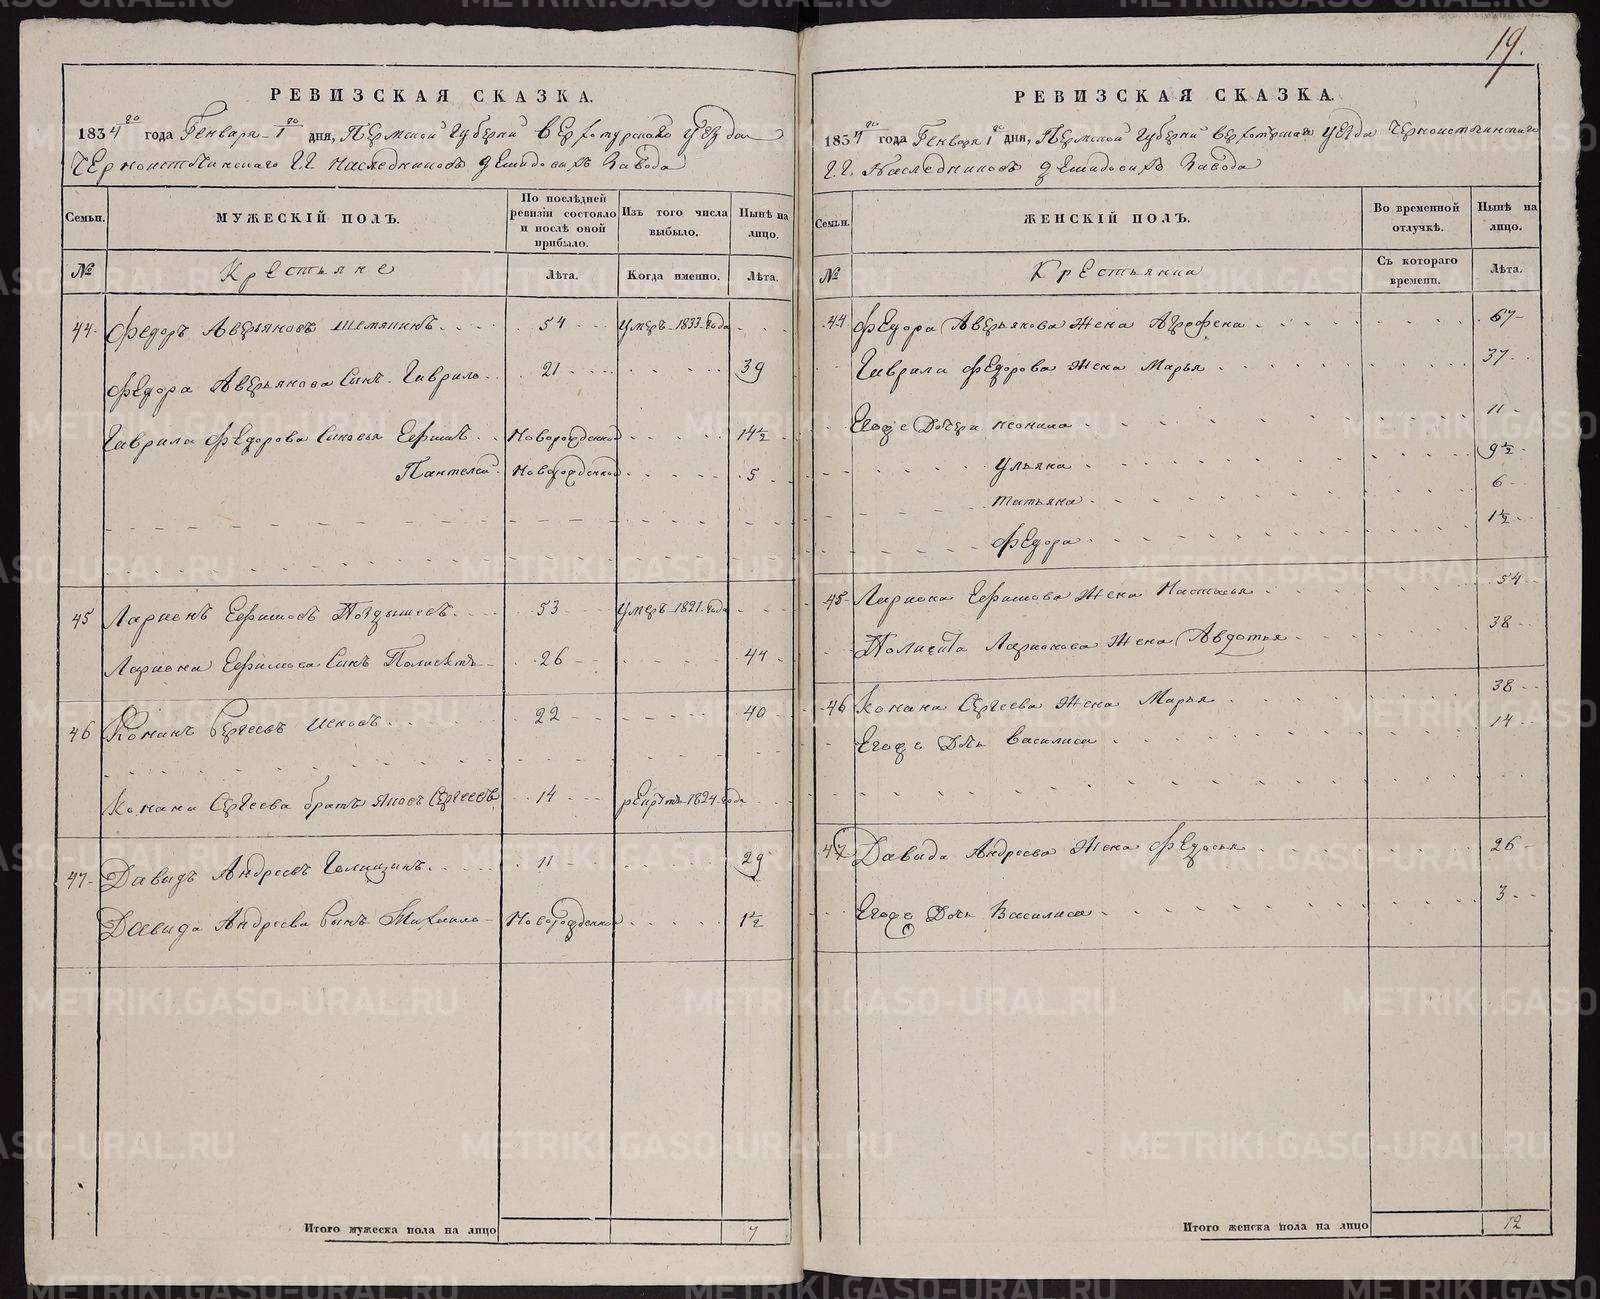 19.
РЕВИЗСКАЯ СКАЗКА.
1834го года Генваря 1го дня, Пермской Губернии Верхотурскаго уезда
Черноисточинскаго Г.Г. Наследниковъ Демидовыхъ Завода
Семьи.
МУЖЕСКІЙ ПОЛЪ.
По послѣдней ревизіи состояло и послѣ оной прибыло.
Изъ того числа выбыло.
Нынѣ на лицо.
№
Крестьяне
Лѣта.
Когда именно.
Лѣта.
44. Федоръ Аверьяновъ Шемякинъ 54 умеръ 1833 года
Федора Аверьянова Сынъ Гаврило 21 39
Гаврила Федорова Сыновья Ефимъ Новорожденной 14½
Пантелей Новорожденной 5
45 Ларионъ Ефимовъ 53 умеръ 1821 года
Лариона Ефимова Сынъ Полиектъ 26 44
46 Романъ Сергеевъ 22 40
Романа Сергеева братъ Яковъ Сергеевъ 14 рекрутъ 1824 года
47 Давыдъ Андреевъ Голицынъ 11 29
Давыда Андреева Сынъ Михаило Новорожденной 1½
Итого мужеска пола на лицо 7
РЕВИЗСКАЯ СКАЗКА.
1834го года Генваря 1го дня, Пермской Губернии Верхотурскаго уезда Черноисточинскаго
Г.Г. Наследниковъ Демидовыхъ Завода
Семьи.
ЖЕНСКІЙ ПОЛЪ.
Во временной отлучкѣ.
Нынѣ на лицо.
№
Крестьянки
Съ котораго времени.
Лѣта.
44 Федора Аверьянова Жена Агрофена 67
Гаврила Федорова Жена Марья 37
Егоже Дочери Неонила 11
Ульяна 9½
Татьяна 6
Федора 1½
45 Лариона Ефимова Жена Настасья 54
Полиекта Ларионова Жена Авдотья 38
46 Романа Сергеева Жена Марья 38
Егоже Дочь Василиса 14
47 Давыда Андреева Жена Федосья 26
Егоже Дочь Василиса 3
Итого женска пола на лицо 12
METRIKI.GASO-URAL.RU